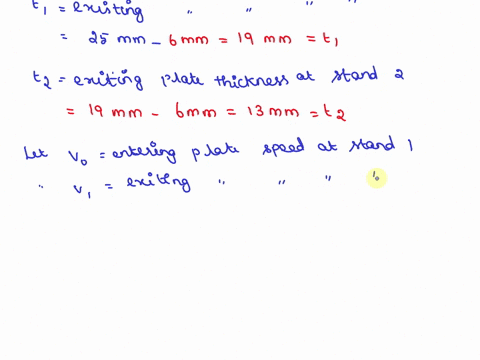 t₁ = existing " " " "
= 25 mm - 6 mm = 19 mm = t₁
t₂ = exiting plate thickness at stand 2
= 19 mm - 6 mm = 13 mm = t₂
Let v₀ = entering plate speed at stand 1
" v₁ = exiting " " "